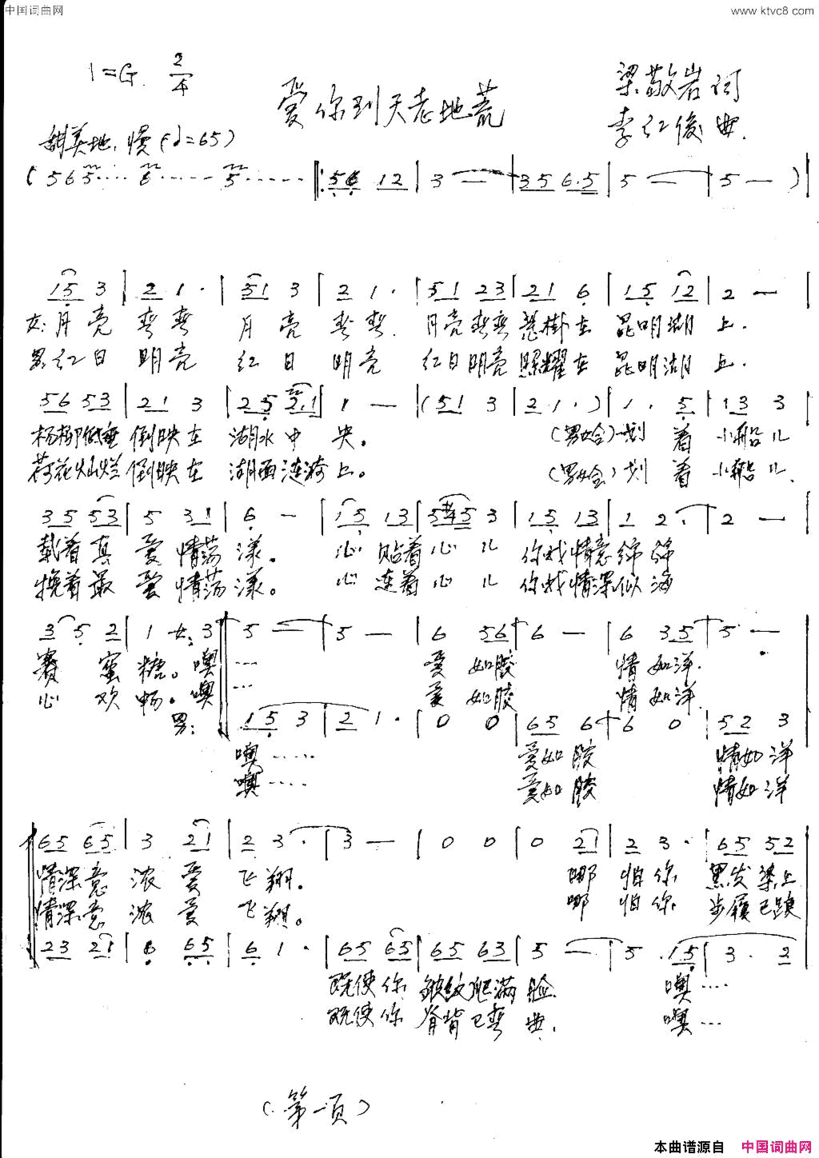 中国词曲网
www.ktvc8.com
1=G 2/4
爱你到天老地荒
梁敬岩词
李红俊曲.
甜美地,慢(♩=65)
(565… 6… 5…… |: 56 12 | 3 — | 35 6·5 | 5 — | 5 — )
15 3 | 21· | 51 3 | 21· | 51 23 | 21 6 | 15 12 | 2 — |
女:月亮 弯弯 月亮 弯弯. 月亮弯弯悬掛在 昆明湖 上.
男:红日 明亮 红日 明亮 红日明亮照耀在 昆明湖 上.
56 53 | 21 3 | 25 2·1 | 1 — | (51 3 | 21·) | 1· 5 | 13 3
杨柳低垂 倒映在 湖水中 央。 (男女合)划 着 小船儿
荷花灿烂倒映在 湖面涟漪上。 (男女合)划 着 小船儿
35 53 | 5 31 | 6 — | 15 13 | 5#45 3 | 15 13 | 1 2· | 2 — |
载着真 爱 情荡 漾。 心 贴着心 儿 你我情意绵 绵
挽着最 爱 情荡 漾。 心 连着心 儿 你我情深似 海
3 5 2 | 1 女:3 | 5 — | 5 — | 6 56 | 6 — | 6 35 | 5 — |
赛 蜜 糖。噢 … 爱 如胶 情 如洋.
心 欢 畅。噢 … 爱 如胶 情 如洋.
男: 15 3 | 21· | 0 0 | 65 6 | 6 0 | 52 3
噢…… 爱如胶 情如洋
噢…… 爱如胶 情如洋
65 65 | 3 21 | 2 3· | 3 — | 0 0 | 0 21 | 2 3· | 65 52
情深意 浓 爱 飞翔。 哪 怕你 黑发染上
情深意 浓 爱 飞翔。 哪 怕你 步履已踉
23 21 | 6 65 | 6 1· | 65 65 | 65 63 | 5 — | 5 ·15 | 3· 2
既使你 皱纹爬满 脸. 噢……
既使你 脊背已弯 曲. 噢……
(第一页)
本曲谱源自 中国词曲网